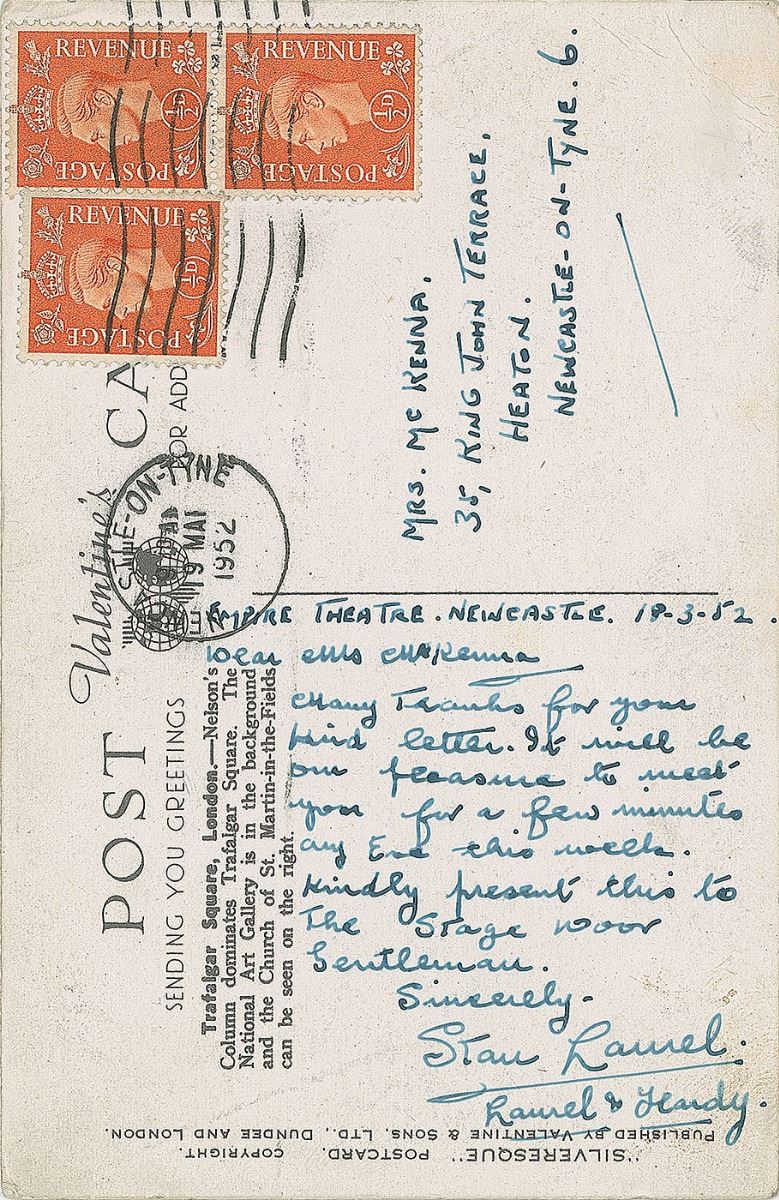 REVENUE
POSTAGE
½D
REVENUE
POSTAGE
½D
REVENUE
POSTAGE
½D
POST CA
Valentine's
SENDING YOU GREETINGS
FOR ADD
STLE-ON-TYNE
19 MAR
1952
NEW
Trafalgar Square, London.—Nelson's
Column dominates Trafalgar Square. The
National Art Gallery is in the background
and the Church of St. Martin-in-the-Fields
can be seen on the right.
MRS. McKENNA,
35, KING JOHN TERRACE,
HEATON.
NEWCASTLE-ON-TYNE. 6.
EMPIRE THEATRE. NEWCASTLE. 18-3-52.
Dear Mrs McKenna
Many Thanks for your
kind letter. It will be
our pleasure to meet
you for a few minutes
any Eve this week.
Kindly present this to
The Stage Door
Gentleman.
Sincerely-
Stan Laurel.
Laurel & Hardy.
"SILVERESQUE" POSTCARD. COPYRIGHT.
PUBLISHED BY VALENTINE & SONS, LTD., DUNDEE AND LONDON.